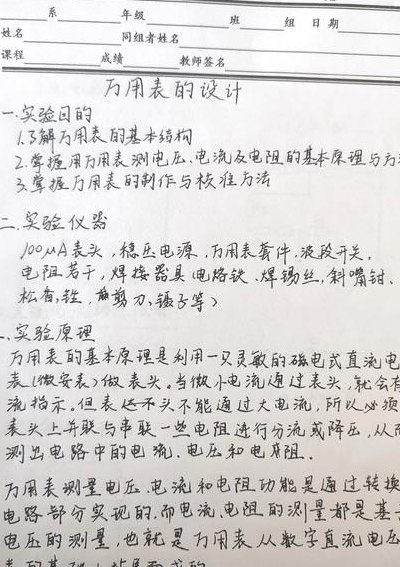 系 年级 班 组 日期
姓名 同组者姓名
课程 成绩 教师签名
万用表的设计
一.实验目的
1.了解万用表的基本结构
2.掌握用万用表测电压、电流及电阻的基本原理与方法
3.掌握万用表的制作与校准方法
二.实验仪器
100μA表头,稳压电源,万用表套件,波段开关,
电阻若干,焊接器具(电烙铁、焊锡丝,斜嘴钳、
松香,锉,剪刀,镊子等)
实验原理
万用表的基本原理是利用一只灵敏的磁电式直流电
表(微安表)做表头。当微小电流通过表头,就会有
流指示。但表头不能通过大电流,所以必须
表头上并联与串联一些电阻进行分流或降压,从而
测出电路中的电流、电压和电阻.
万用表测量电压、电流和电阻功能是通过转换
电路部分实现的,而电流、电阻的测量都是基于
电压的测量,也就是万用表从数字直流电压